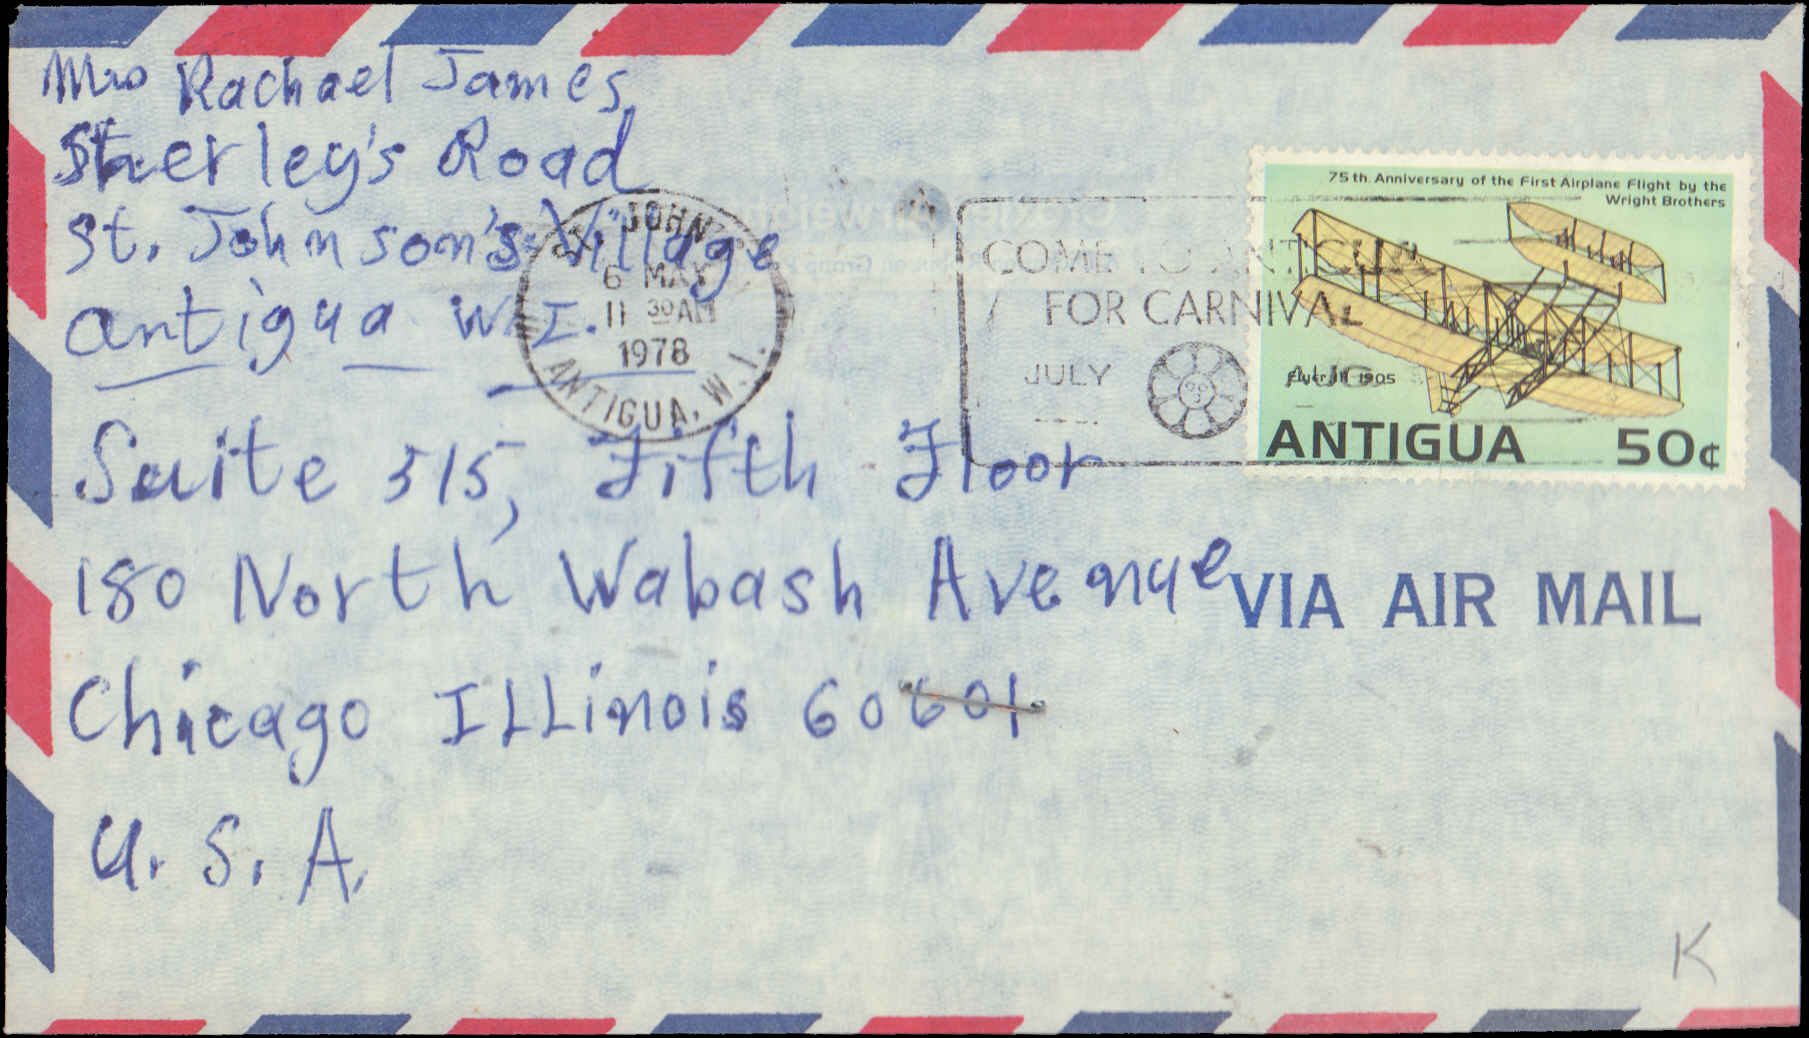 Mrs Rachael James,
Sherley's Road
St. Johnson's Village
Antigua W.I.
ST. JOHN'S
6 MAY
11 30AM
1978
ANTIGUA, W.I.
COME TO ANTIGUA
FOR CARNIVAL
JULY AUG
75th. Anniversary of the First Airplane Flight by the
Wright Brothers
Flyer III 1905
ANTIGUA 50¢
Suite 515, Fifth Floor
180 North Wabash Avenue
VIA AIR MAIL
Chicago ILLinois 60601
U.S.A.
K